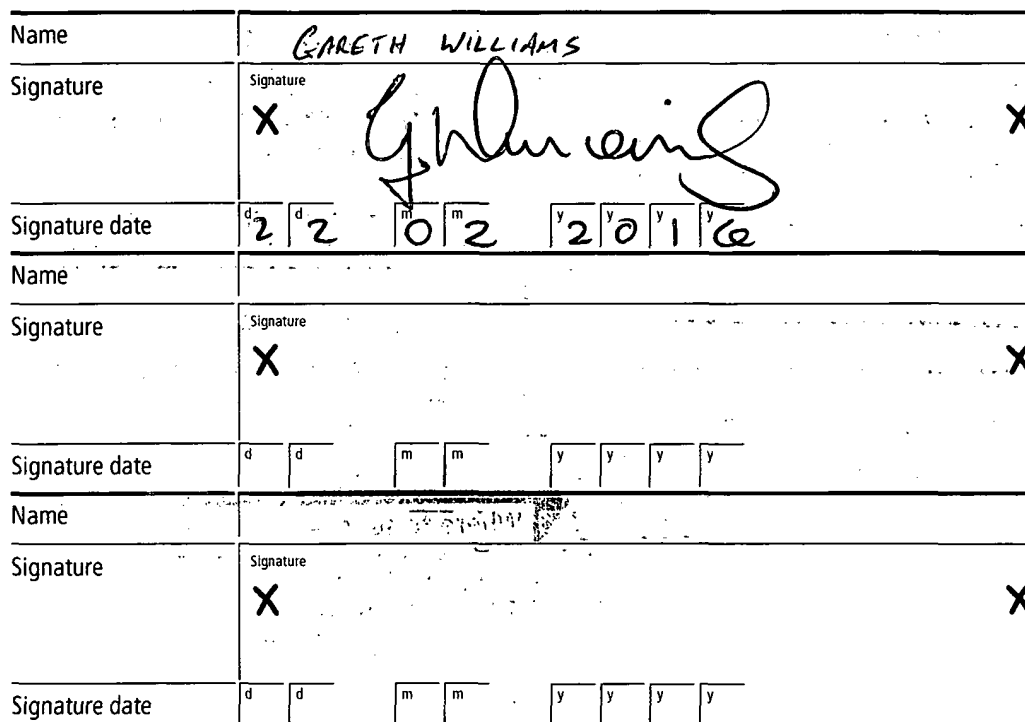 Name GARETH WILLIAMS
Signature Signature
X X
Signature date d2 d2 m0 m2 y2 y0 y1 y6
Name
Signature Signature
X X
Signature date d d m m y y y y
Name
Signature Signature
X X
Signature date d d m m y y y y